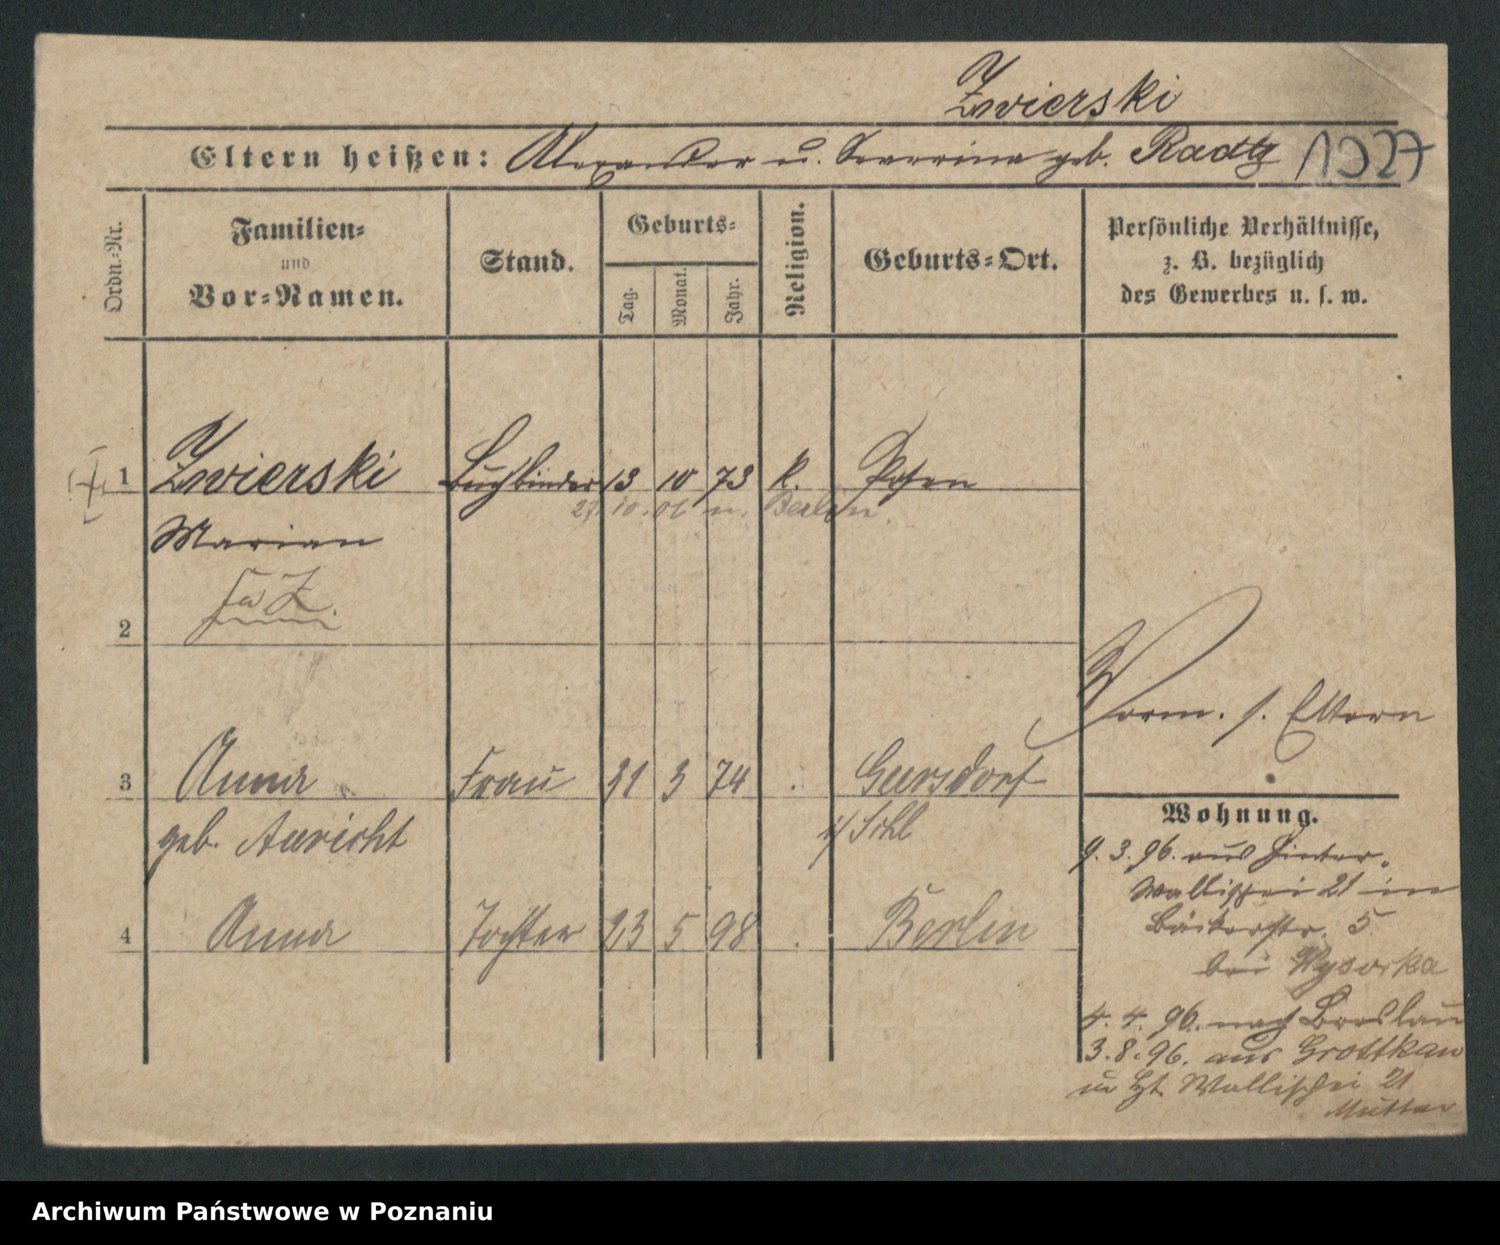 Zwierski
Eltern heißen: Alexander u. Severina geb. Radtz 1927
Ordn.-Nr.
Familien-
und
Vor-Namen.
Stand.
Geburts-
Tag.
Monat.
Jahr.
Religion.
Geburts-Ort.
Persönliche Verhältnisse,
z. B. bezüglich
des Gewerbes u. s. w.
1 Zwierski Buchbinder 13 10 73 k. Posen
27. 10. 06 n. Berlin.
Marian
2
Vorm. s. Eltern
3 Anna Frau 31 3 74 . Geersdorf
geb. Auricht i/Schl
4 Anna Tochter 23 5 98 . Berlin
Wohnung.
9. 3. 96. aus Hinter-
Wallischei 21 in
Bäckerstr. 5
bei Wysocka
4. 4. 96. nach Breslau
3. 8. 96. aus Grottkau
Wallischei 21
Mutter
Archiwum Państwowe w Poznaniu